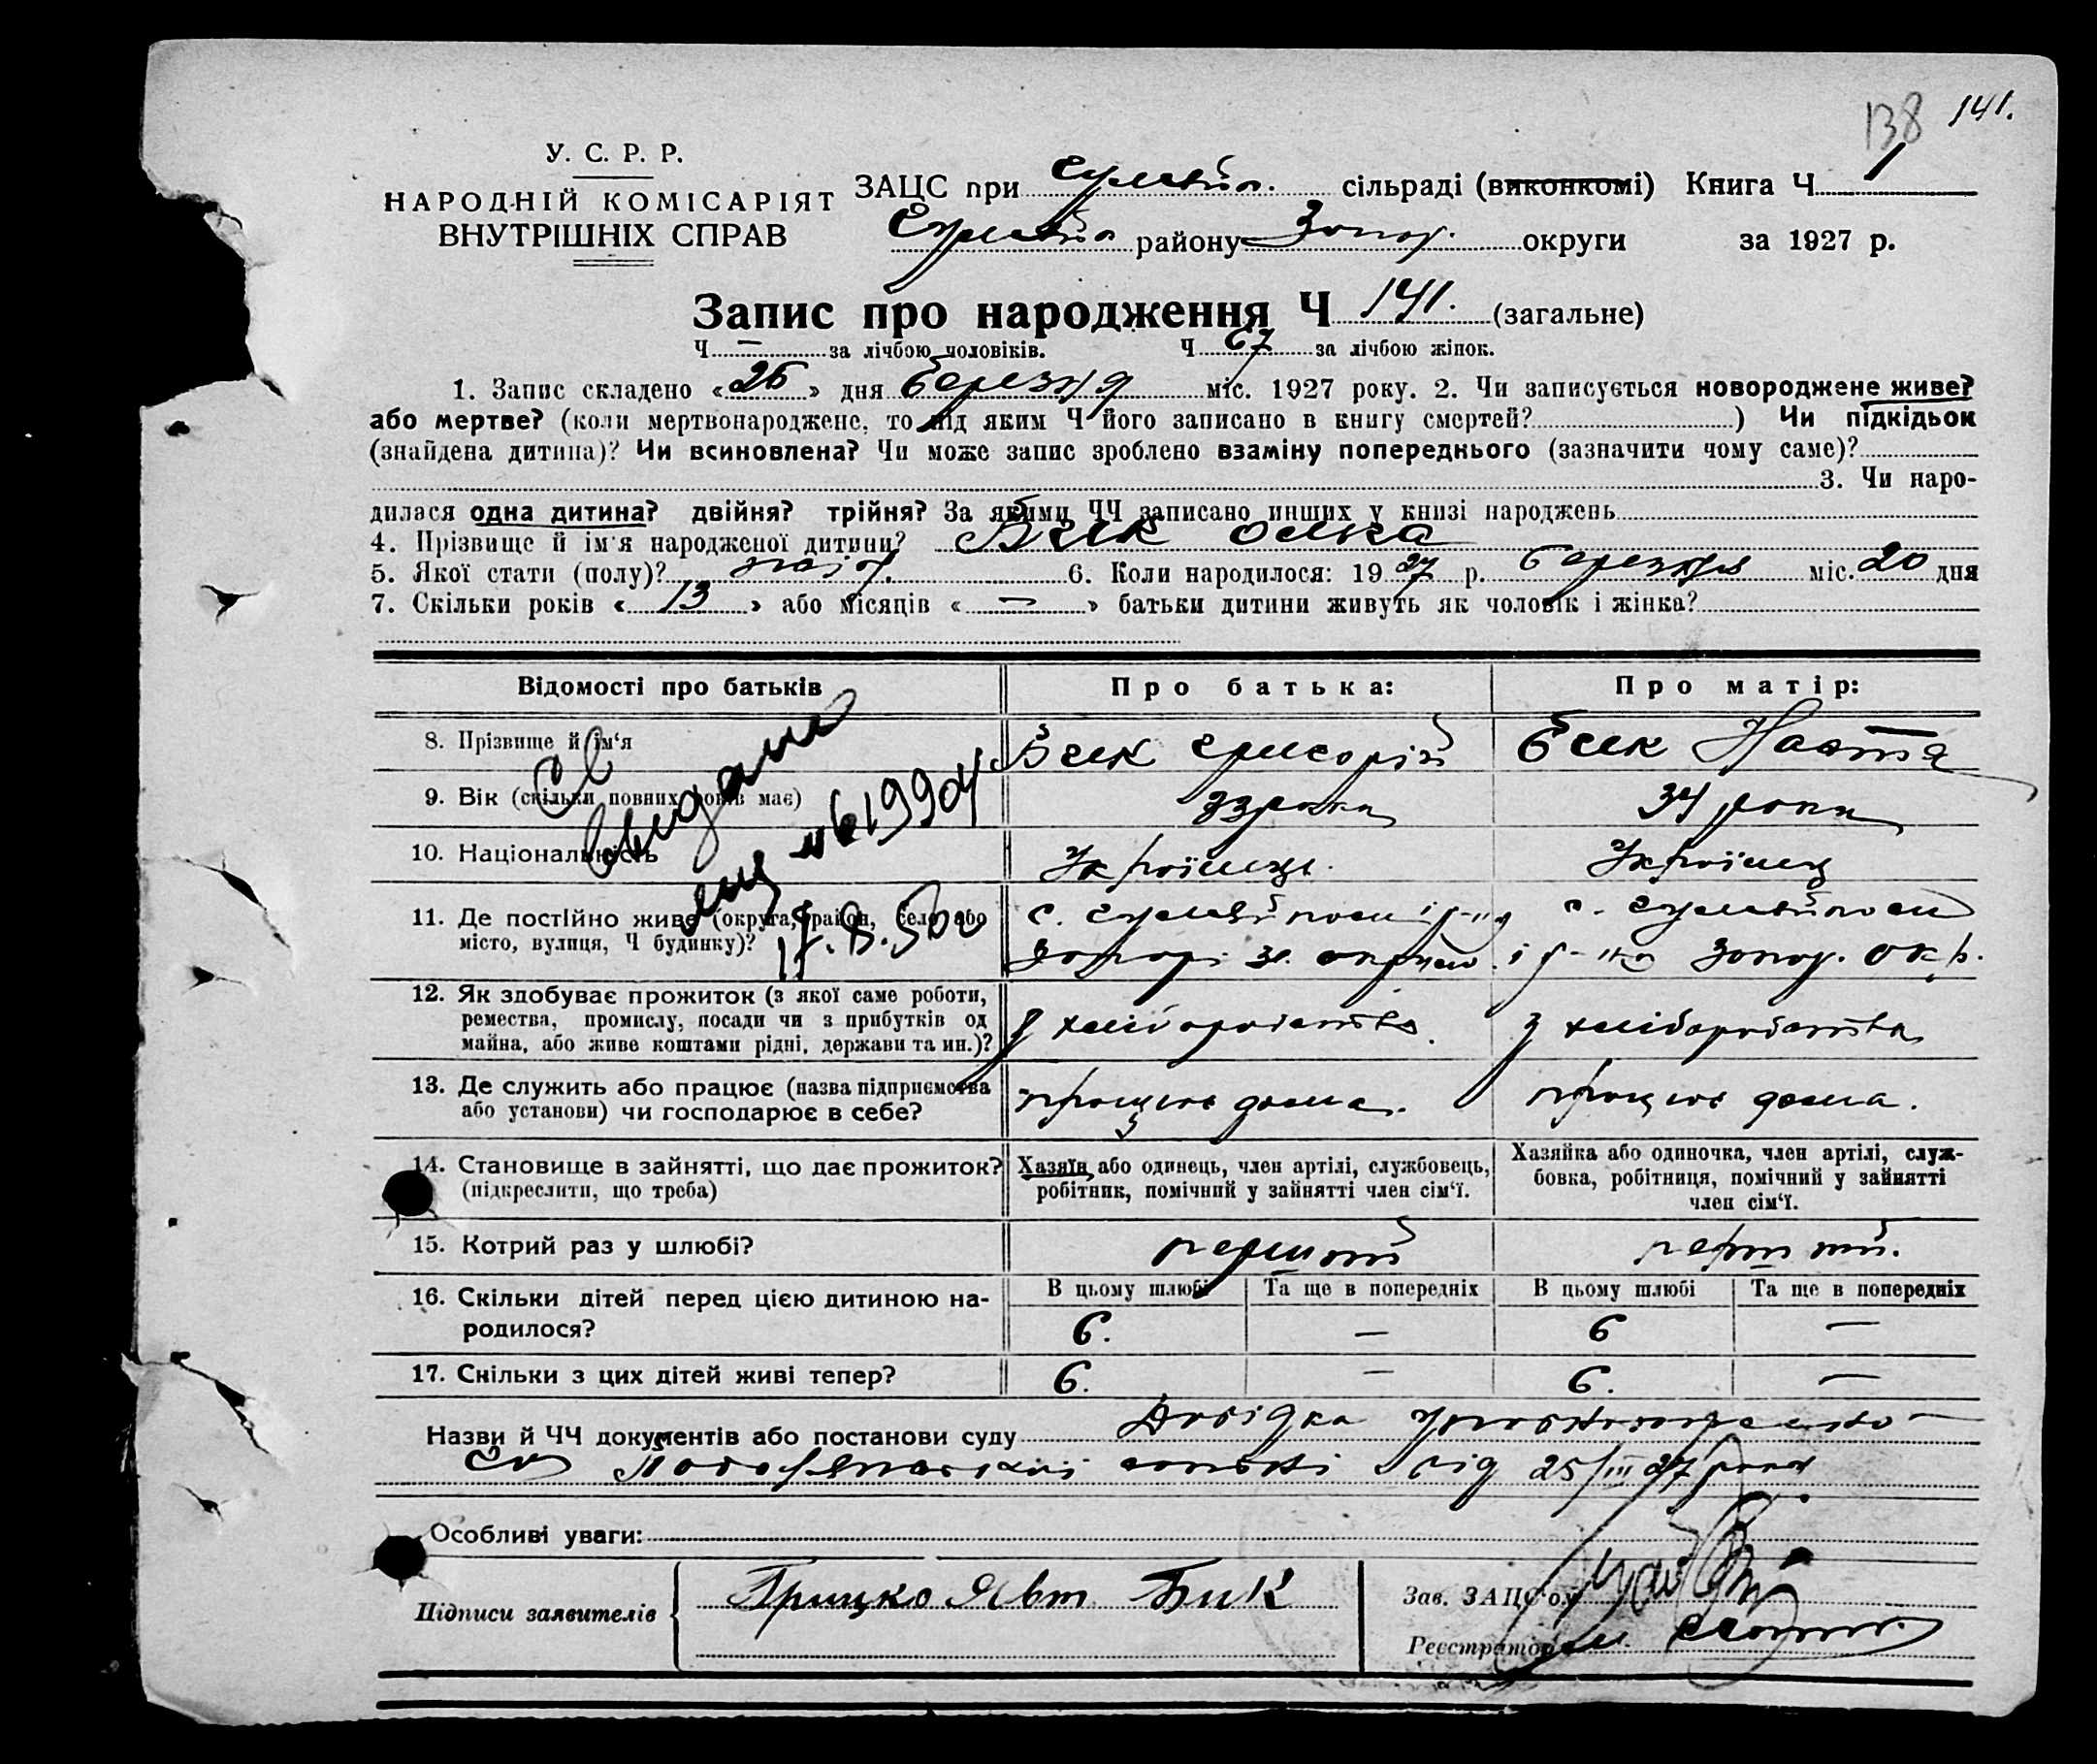 138 141.
У. С. Р. Р.
НАРОДНІЙ КОМІСАРІЯТ
ВНУТРІШНІХ СПРАВ
ЗАЦС при Гуляйп. сільраді (виконкомі) Книга Ч 1
Гуляйп району Запор. округи за 1927 р.
Запис про народження Ч 141. (загальне)
Ч — за лічбою чоловіків. Ч 67 за лічбою жінок.
1. Запис складено «26» дня березня міс. 1927 року. 2. Чи записується новороджене живе?
або мертве? (коли мертвонароджене, то під яким Ч його записано в книгу смертей? ) Чи підкідьок
(знайдена дитина)? Чи всиновлена? Чи може запис зроблено взаміну попереднього (зазначити чому саме)?
3. Чи наро-
дилася одна дитина? двійня? трійня? За якими ЧЧ записано инших у книзі народжень
4. Прізвище й ім'я народженої дитини? Бик Олька
5. Якої стати (полу)? жін. 6. Коли народилося: 1927 р. березня міс. 20 дня
7. Скільки років «13» або місяців «—» батьки дитини живуть як чоловік і жінка?
Відомості про батьків Про батька: Про матір:
8. Прізвище й ім'я Бик Григорій Бик Настя
9. Вік (скільки повних років має) 33 роки 34 роки
10. Національність Українець. Українц
11. Де постійно живе (округа, район, село або
місто, вулиця, Ч будинку)? с. Гуляйполе і р-на с. Гуляйполе
і р-на Запор. окр.
17.8.50
12. Як здобуває прожиток (з якої саме роботи,
ремества, промислу, посади чи з прибутків од
майна, або живе коштами рідні, держави та ин.)? З хліборобства. З хліборобства
13. Де служить або працює (назва підприємства
або установи) чи господарює в себе? працює дома. працює дома.
14. Становище в зайнятті, що дає прожиток?
(підкреслити, що треба)
Хазяїн або одинець, член артілі, службовець,
робітник, помічний у зайнятті член сім'ї.
Хазяйка або одиночка, член артілі, служ-
бовка, робітниця, помічний у зайнятті
член сім'ї.
15. Котрий раз у шлюбі? перший перший.
В цьому шлюбі Та ще в попередніх В цьому шлюбі Та ще в попередніх
16. Скільки дітей перед цією дитиною на-
родилося? 6. — 6 —
17. Скільки з цих дітей живі тепер? 6. — 6. —
Назви й ЧЧ документів або постанови суду Довідка
від 25/III 27 року
Особливі уваги:
Підписи заявителів Грицко Явт Бик
Зав. ЗАЦС'ом
Реєстратор